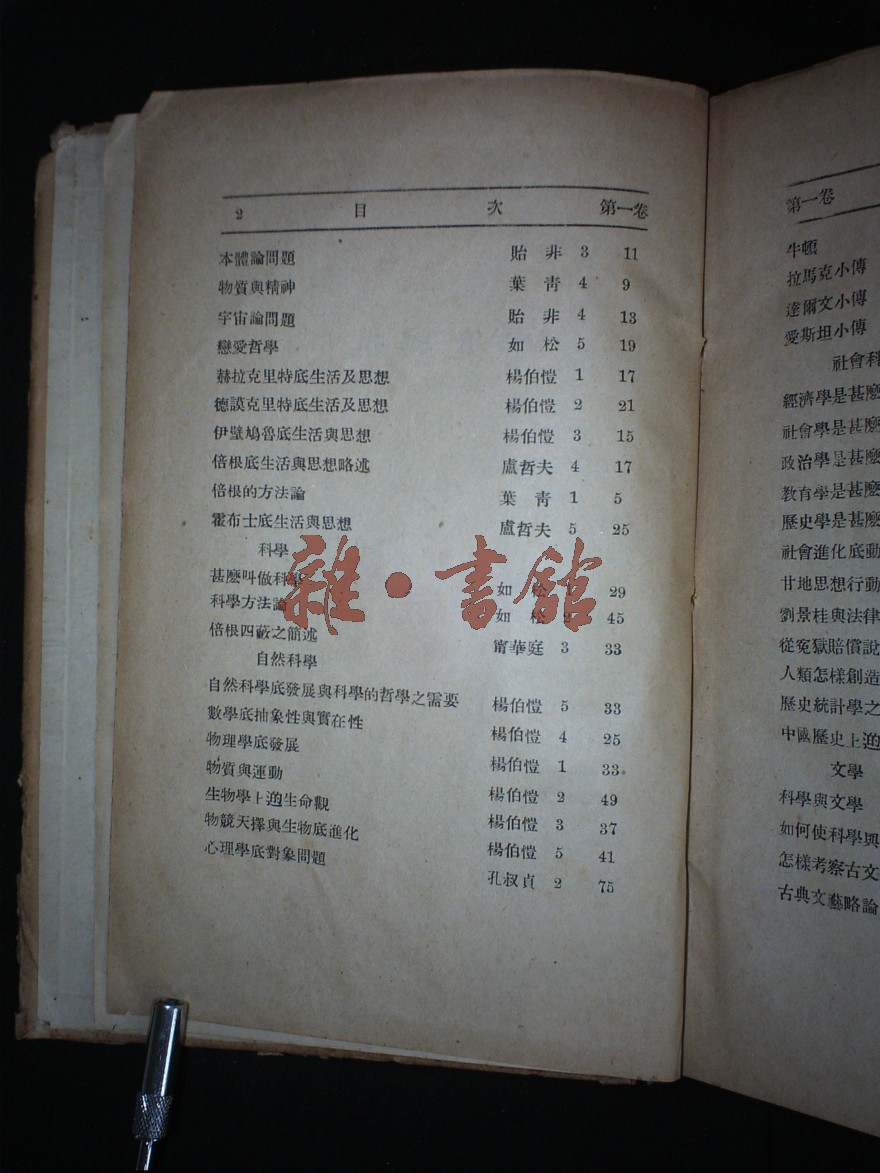 2 目 次 第一卷
本體論問題 貽非 3 11
物質與精神 葉青 4 9
宇宙論問題 貽非 4 13
戀愛哲學 如松 5 19
赫拉克里特底生活及思想 楊伯愷 1 17
德謨克里特底生活及思想 楊伯愷 2 21
伊壁鳩魯底生活與思想 楊伯愷 3 15
倍根底生活與思想略述 盧哲夫 4 17
倍根的方法論 葉青 1 5
霍布士底生活與思想 盧哲夫 5 25
科學
甚麼叫做科學 如松 29
科學方法論 如松 2 45
倍根四蔽之簡述 甯華庭 3 33
自然科學
自然科學底發展與科學的哲學之需要 楊伯愷 5 33
數學底抽象性與實在性 楊伯愷 4 25
物理學底發展 楊伯愷 1 33
物質與運動 楊伯愷 2 49
生物學上生命觀 楊伯愷 3 37
物競天擇與生物底進化 楊伯愷 5 41
心理學底對象問題 孔叔貞 2 75
雜·書館
第一卷
牛頓
拉馬克小傳
達爾文小傳
愛斯坦小傳
社會科
經濟學是甚麼
社會學是甚麼
政治學是甚麼
教育學是甚麼
歷史學是甚麼
社會進化底動
甘地思想行動
劉景桂與法律
從冤獄賠償說
人類怎樣創造
歷史統計學之
中國歷史上
文學
科學與文學
如何使科學與
怎樣考察古文
古典文藝略論